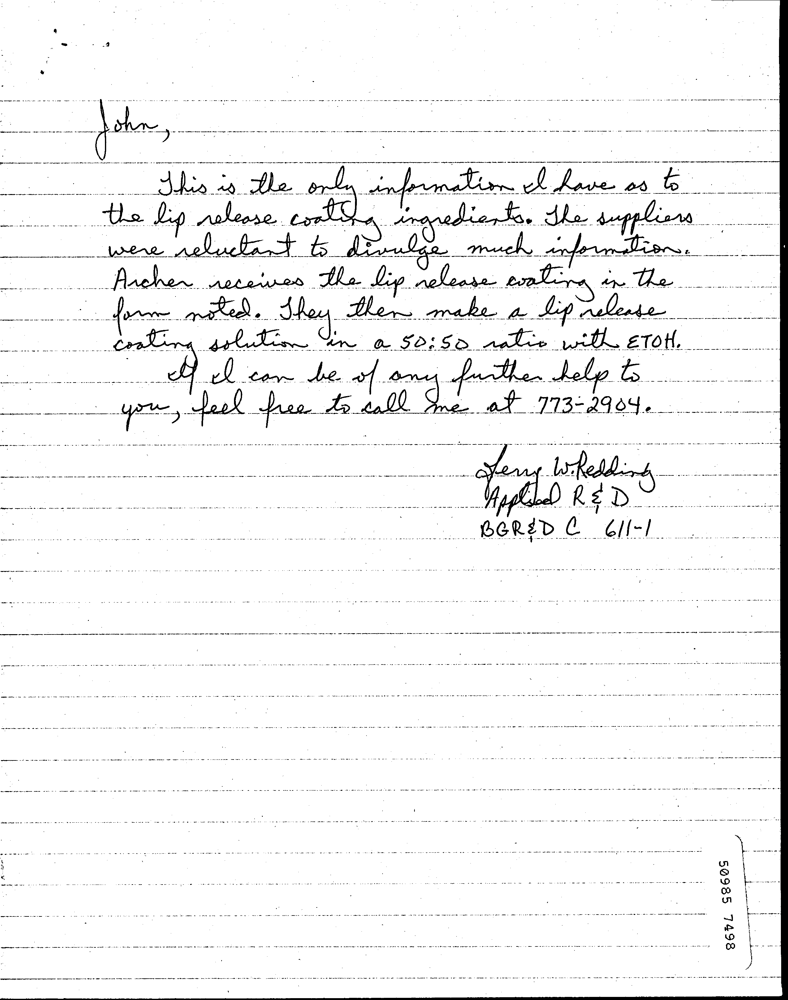 John,
This is the only information I have as to
the lip release coating ingredients. The suppliers
were reluctant to divulge much information.
Archer receives the lip release coating in the
form noted. They then make a lip release
coating solution in a 50:50 ratio with ETOH.
If I can be of any further help to
you, feel free to call me at 773-2904.
Jerry W. Redding
Applied R & D
BGR&D C 611-1
50985 7498